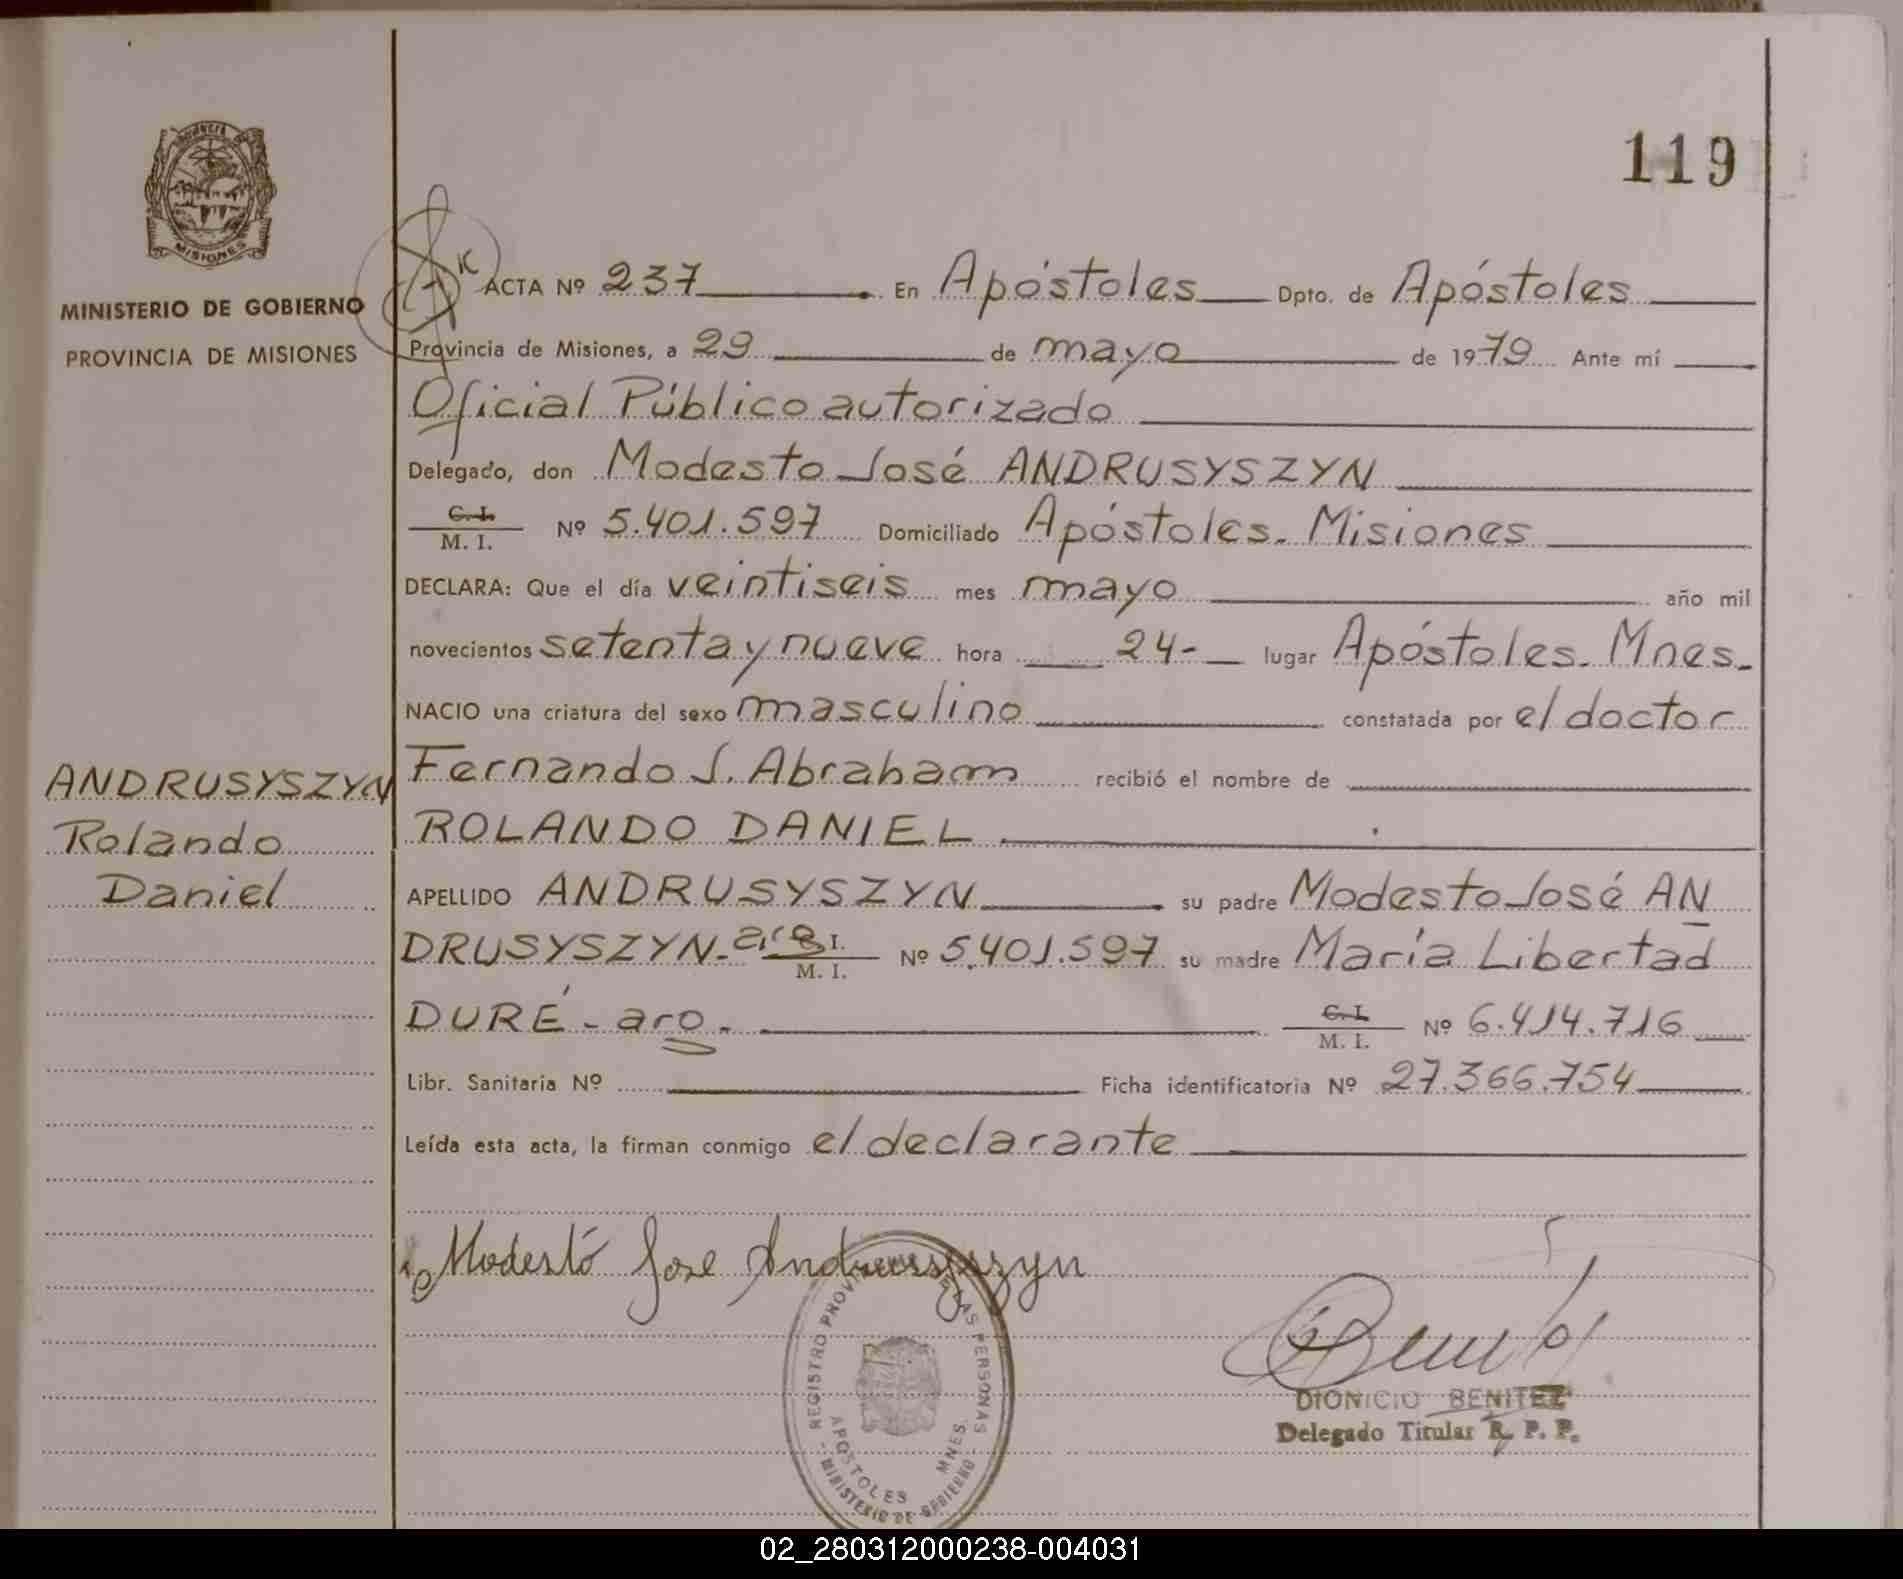 119
MISIONES
MINISTERIO DE GOBIERNO
PROVINCIA DE MISIONES
ACTA Nº 237 En Apóstoles Dpto. de Apóstoles
Provincia de Misiones, a 29 de mayo de 1979 Ante mí
Oficial Público autorizado
Delegado, don Modesto José ANDRUSYSZYN
C. I.
M. I. Nº 5.401.597 Domiciliado Apóstoles. Misiones
DECLARA: Que el día veintiseis mes mayo año mil
novecientos setenta y nueve hora 24- lugar Apóstoles. Mnes.
NACIO una criatura del sexo masculino constatada por el doctor
Fernando J. Abraham recibió el nombre de
ROLANDO DANIEL
ANDRUSYSZYN
Rolando
Daniel
APELLIDO ANDRUSYSZYN su padre Modesto José AN
DRUSYSZYN-aro C. I.
M. I. Nº 5.401.597 su madre María Libertad
DURÉ - aro. C. I.
M. I. Nº 6.414.716
Libr. Sanitaria Nº Ficha identificatoria Nº 27.366.754
Leída esta acta, la firman conmigo el declarante
Modestó Jose Andrusyszyn
REGISTRO PROVINCIAL DE LAS PERSONAS
APOSTOLES MNES.
- MINISTERIO DE GOBIERNO -
DIONICIO BENITEZ
Delegado Titular R. P. P.
02_280312000238-004031